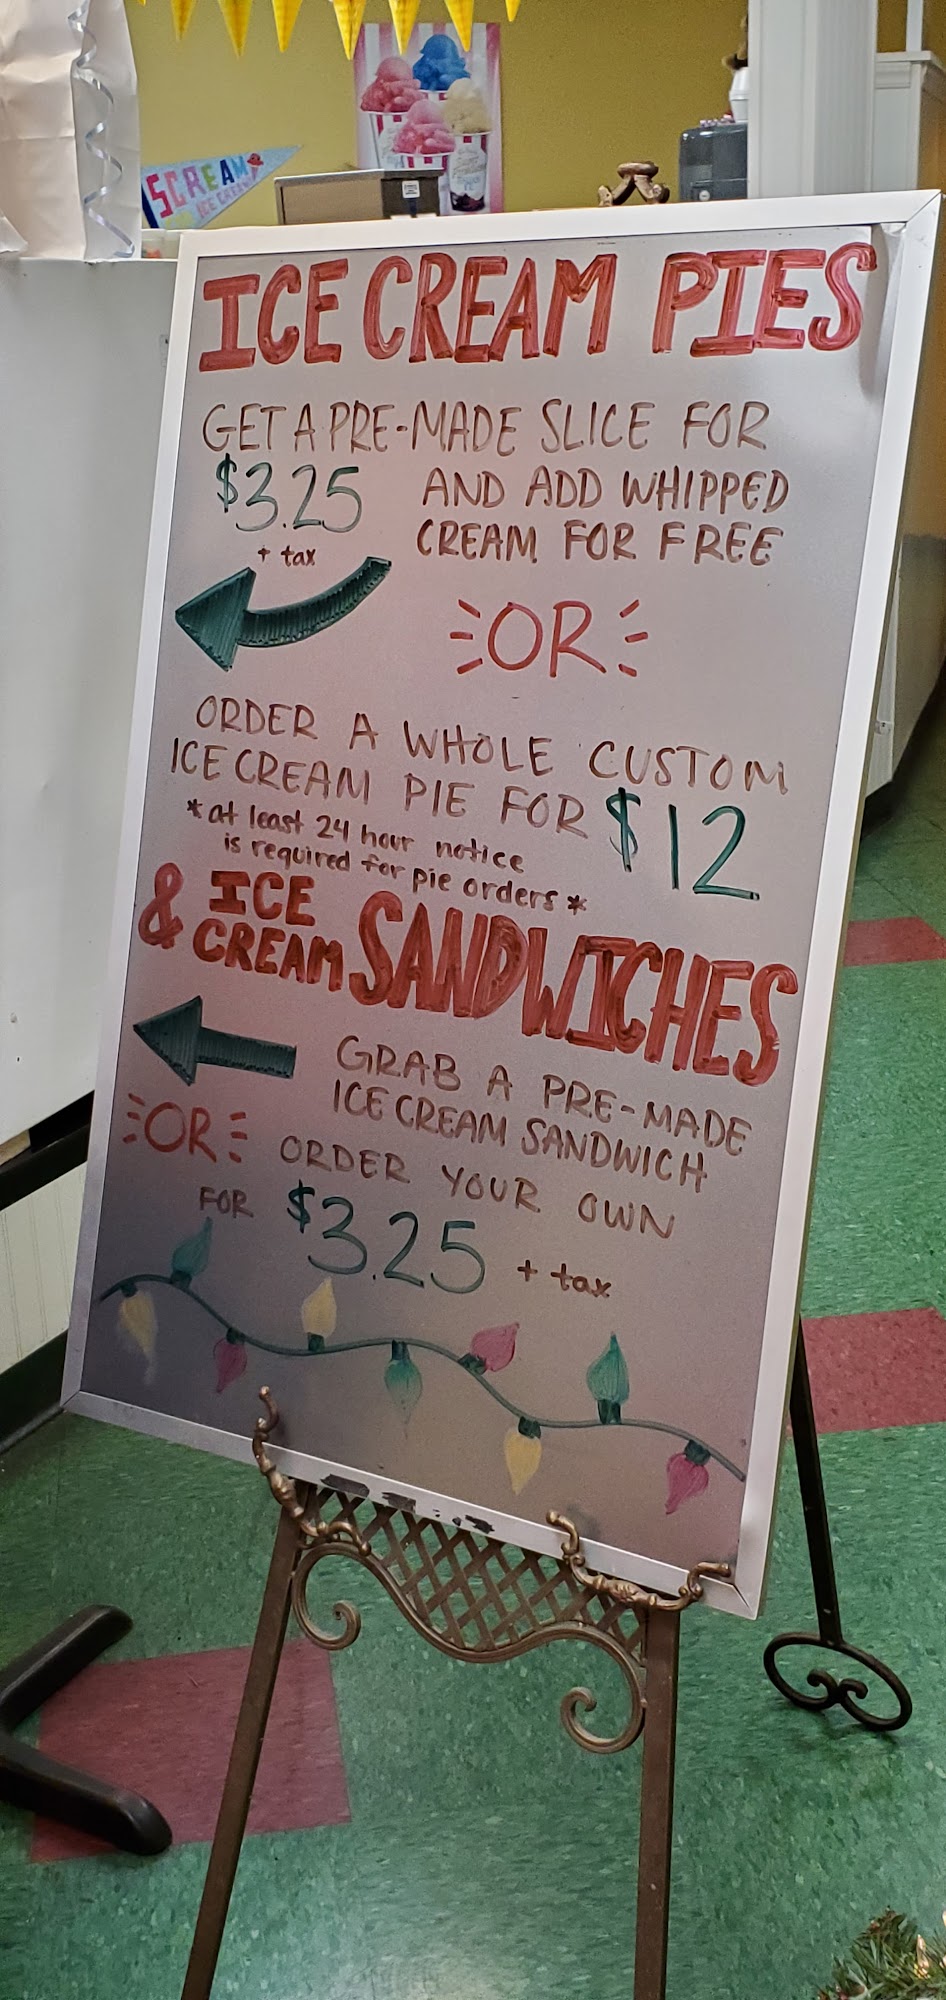 SCREAM
ICE CREAM
ICE CREAM PIES
GET A PRE-MADE SLICE FOR
$3.25 AND ADD WHIPPED
+ tax CREAM FOR FREE
OR
ORDER A WHOLE CUSTOM
ICE CREAM PIE FOR $12
*at least 24 hour notice
is required for pie orders*
& ICE CREAM SANDWICHES
GRAB A PRE-MADE
ICE CREAM SANDWICH
OR ORDER YOUR OWN
FOR $3.25 + tax